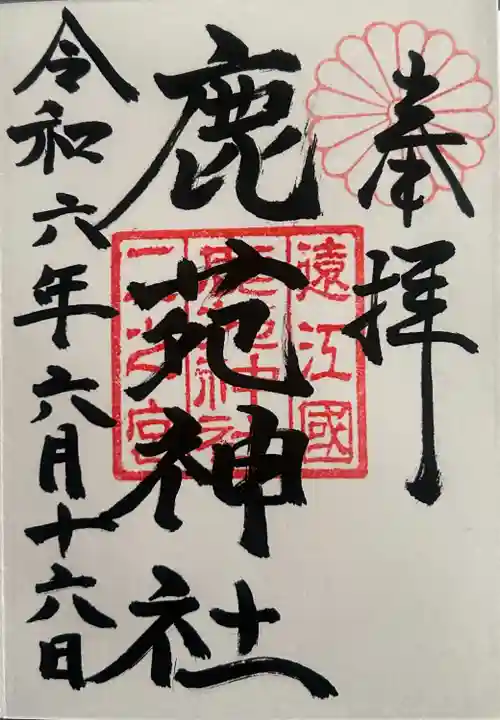 奉拝
鹿苑神社
令和六年六月十六日
遠江國
鹿苑神社
二之宮